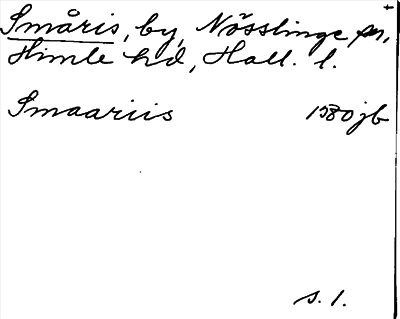 Småris, by, Nösslinge sn,
Himle hd, Hall. l.
Smaariis 1580 jb
s. 1.